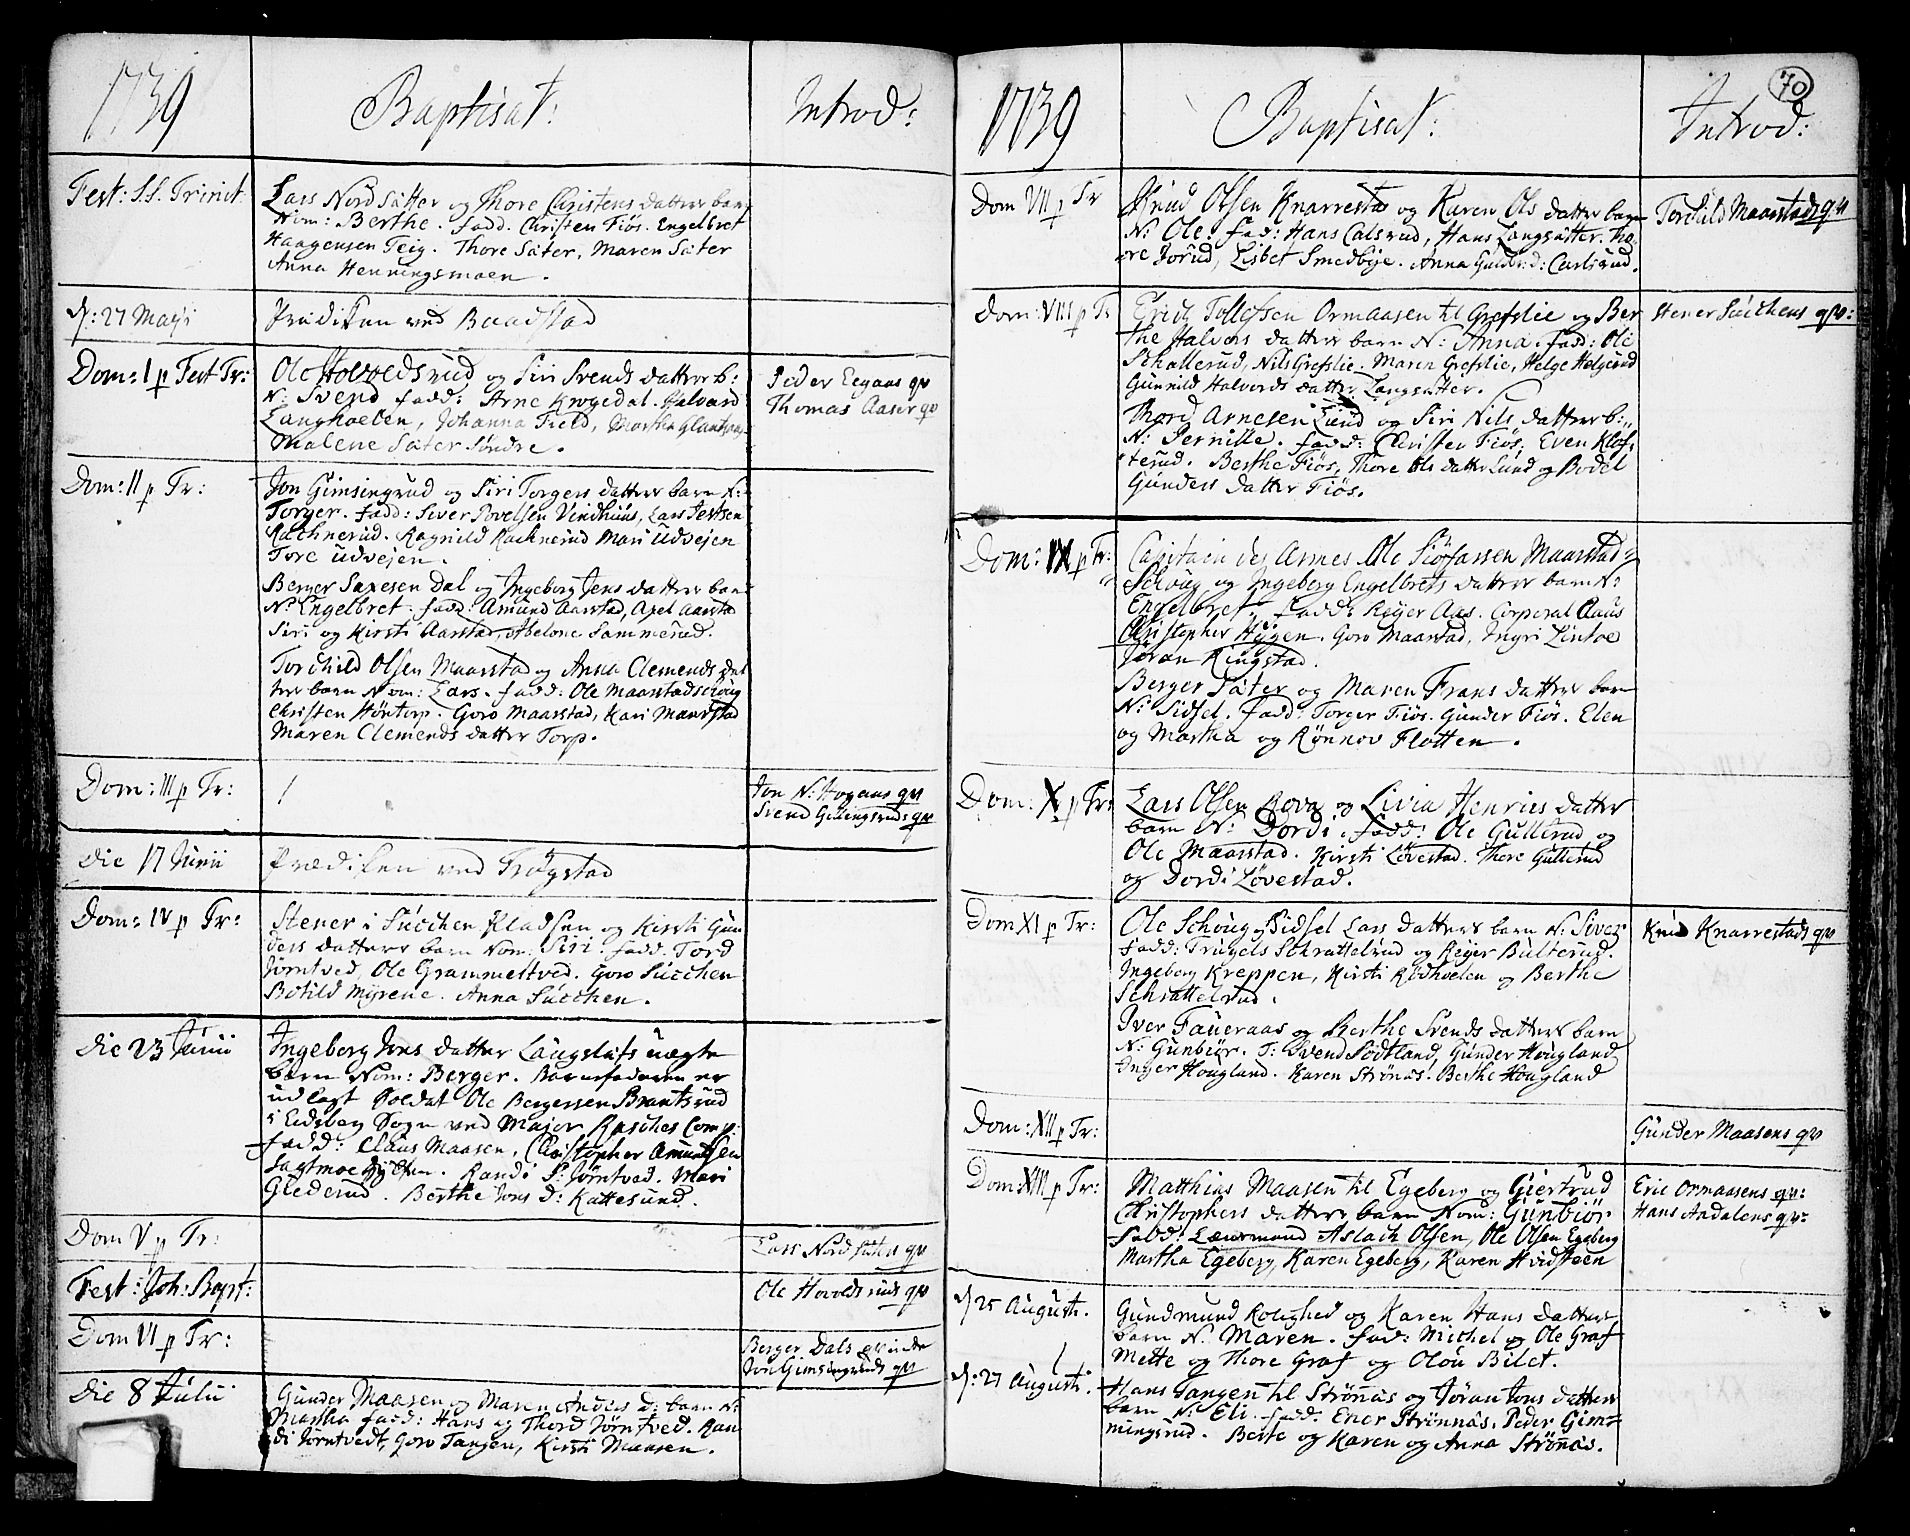 1739
Baptisat:
Introd:
Fest: S.S. Trinit:
Lars Nordsäter og Thore Christens datters barn
Nom: Berthe. fadd. Christen Fiös. Engelbret
Haagensen Teig. Thore Säter, Maren Säter
Anna Henningsmoen.
d: 27 Maji
Prædiken ved Baadstad
Dom: I p Fest Tr:
Ole Hovoldsrud og Siri Svends datters b:
N: Svend fadd: Arne Krogedal. Halvard
Langhoelen, Johanna Field, Marthe
Malene Säter Söndre.
Peder Eegaas qv
Thomas Aaser qv
Dom: II p Tr:
Jon Gimsingrud og Siri Torgers datters barn N:
Torger. fadd: Siver Povelsen Vindhuus, Lars Jensen
Rachnerud. Ragnild Rachnerud Mari Udvejen
Tore Udvejen.
Berger Saxesen Dal og Ingeborg Jens datters barn
N: Engelbret. fadd: Amund Aarstad, Axel Aarstad
Siri og Kirsti Aarstad, Abelone Sammerud.
Torchild Olsen Maarstad og Anna Clemends dat
ters barn Nom: Lars. fadd: Ole Maarstadschoug
Christen Höntorp. Goro Maarstad, Kari Maarstad
Maren Clemends datter Torp.
Dom: III p Tr:
/
Jon N: Hogaas qv
Svend Gillingsruds qv
Die 17 Junii
Prædiken ved Trögstad
Dom: IV p Tr:
Stener i Succhen Pladsen og Kirsti Gun
ders datters barn Nom: Siri. fadd: Tord
Jörntved, Ole Grammeltved. Goro Succhen
Botild Myrene. Anna Succhen.
Die 23 Junii
Ingeborg Jons datter Langslets uægte
barn Nom: Berger. Barnefaderen er
udlagt Soldat Ole Bergersen Brantsrud
i Eidsberg Sogn ved Major Rasches Comp:
fadd: Claus Maasen, Christopher Amundsen
Randi S: Jörntved. Mari
Glederud. Berthe Jons d: Kattesund.
Dom V p Tr:
Lars Nordsäters qv
Fest: Joh: Bapt:
Ole Hovoldsruds qv
Dom VI p Tr:
Berger Dals qvinde
Jon Gimsingruds qv
Die 8 Julii
Gunder Maasen og Maren Anders d: barn N:
Martha fadd: Hans og Thord Jörntved. Ran
di Jörntvedt, Goro Tangen, Kirsti Maasen.
70
1739
Baptisat:
Introd:
Dom VII p Tr
Knud Olsen Knarrestad og Karen Ols datters barn
N: Ole. fad: Hans Calsrud, Hans Langsätter. Tho
re Jorud, Lisbet Smedbye. Anna Guldb: d: Carlsrud.
Torchild Maarstads qv
Dom: VIII p Tr
Erich Tollefsen Ormaasen til Grefslie og Ber
the Halvors datters barn N: Anna. fadd: Ole
Schallerud, Nils Grefslie. Maren Grefslie, Helge Helgerud
Gunnild Halvords datter Langsätter.
Thord Arnesen Lund og Siri Nils datters b:
N: Pernille. fadd: Christen Fiös. Even Klos
terud. Berthe Fiös, Thore Ols datter Lund og Bodel
Gunders datter Fiös.
Stener Succhens qv:
Dom: IX p Tr:
Capitain des Armes Ole Siösassen Maarstad
Schoug og Ingeberg Engelbrets datters barn N:
Engelbret. fadd: Reyer Aas. Corporal Claus
Christopher Hygen. Goro Maarstad, Ingri Lintoe
Jöran Ringstad.
Berger Säter og Maren Frans datters barn
N: Sidsel. fadd: Torger Fiös. Gunder Fiös. Elen
og Martha og Rönnov Flatten.
Dom: X p Tr:
Lars Olsen Rova og Livia Henrics datters
barn N: Dordi. fadd: Ole Gullerud og
Ole Maarstad. Kirsti Lövestad. Thore Gullerud
og Dordi Lövestad.
Dom XI p Tr:
Ole Schoug og Sidsel Lars datters barn N: Siver
fadd: Trugels Schrattelrud og Reyer Bulterud.
Ingeberg Kreppen, Kirsti Rödhoelen og Berthe
Schrattelrud.
Iver Faueraas og Berthe Svends datters barn
N: Gunbiör. T: Svend Södtland, Gunder Hougland
Inger Hougland. Karen Strönäs. Berthe Hougland
Knud Knarrestads qv
Dom: XII p Tr:
Gunder Maasens qv
Dom: XIII p Tr:
Matthias Maasen til Egeberg og Giertrud
Christophers datters barn Nom: Gunbiör
fadd: Lænsmand Aslach Olsen, Ole Olsen Egeberg
Martha Egeberg, Karen Egeberg, Karen Hvidsteen
Eric Ormaasens qv:
Hans Aadalens qv:
d: 25 Augusti.
Gundmund Kolighed og Karen Hans datters
barn N: Maren. fad: Michel og Ole Graf
Mette og Thore Graf og Olou Bilet.
d: 27 Augusti
Hans Tangen til Strönäs og Jöran Jons datters
barn N: Eli. fadd: Ener Strönnäs. Peder Gim
mingsrud. Berte og Karen og Anna Strönäs.